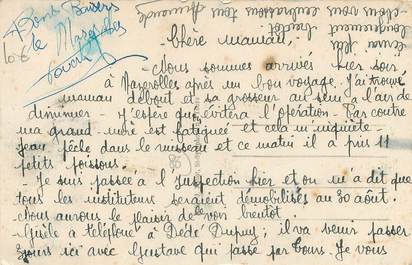 Bons Baisers
de Mazerolles
Chère Maman,
- Nous sommes arrivés hier soir,
à Mazerolles après un bon voyage. J'ai trouvé
maman debout et sa grosseur au sein a l'air de
diminuer - J'espère que évitera l'opération - Par contre
ma grand-mère est fatiguée et cela m'inquiète -
Jean pêche dans le ruisseau et ce matin il a pris 11
petits poissons.
- Je suis passée à l'Inspection hier et on m'a dit que
tous les instituteurs seraient démobilisés au 30 août.
- Nous aurons le plaisir de le voir bientôt.
- Gisèle a téléphoné à Dédé Dupuy ; il va venir passer
jours ici avec Gustave qui passe par Tours. Je vous
longuement bientôt
- Nous vous embrassons tous